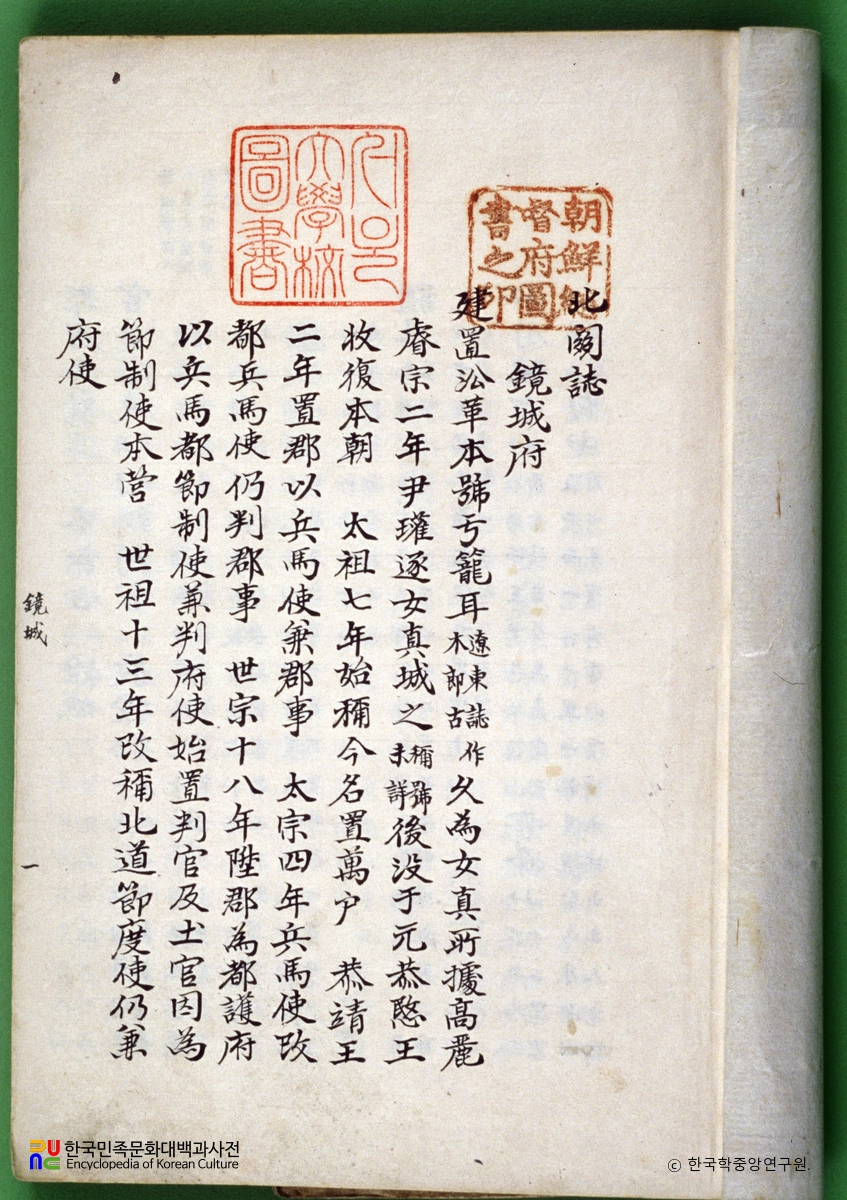 北關誌
鏡城府
建置㳂革本號亏籠耳遼東誌作木郎古久為女真所據高麗
睿宗二年尹瓘逐女真城之稱號未詳後没于元恭愍王
收復本朝 太祖七年始稱今名置萬户 恭靖王
二年置郡以兵馬使兼郡事 太宗四年兵馬使改
都兵馬使仍判郡事 世宗十八年陞郡為都護府
以兵馬都節制使兼判府使始置判官及土官因為
節制使本營 世祖十三年改稱北道節度使仍兼
府使
鏡城
一
朝鮮總
督府圖
書之印
大學校
圖書
한국민족문화대백과사전
Encyclopedia of Korean Culture
ⓒ 한국학중앙연구원.